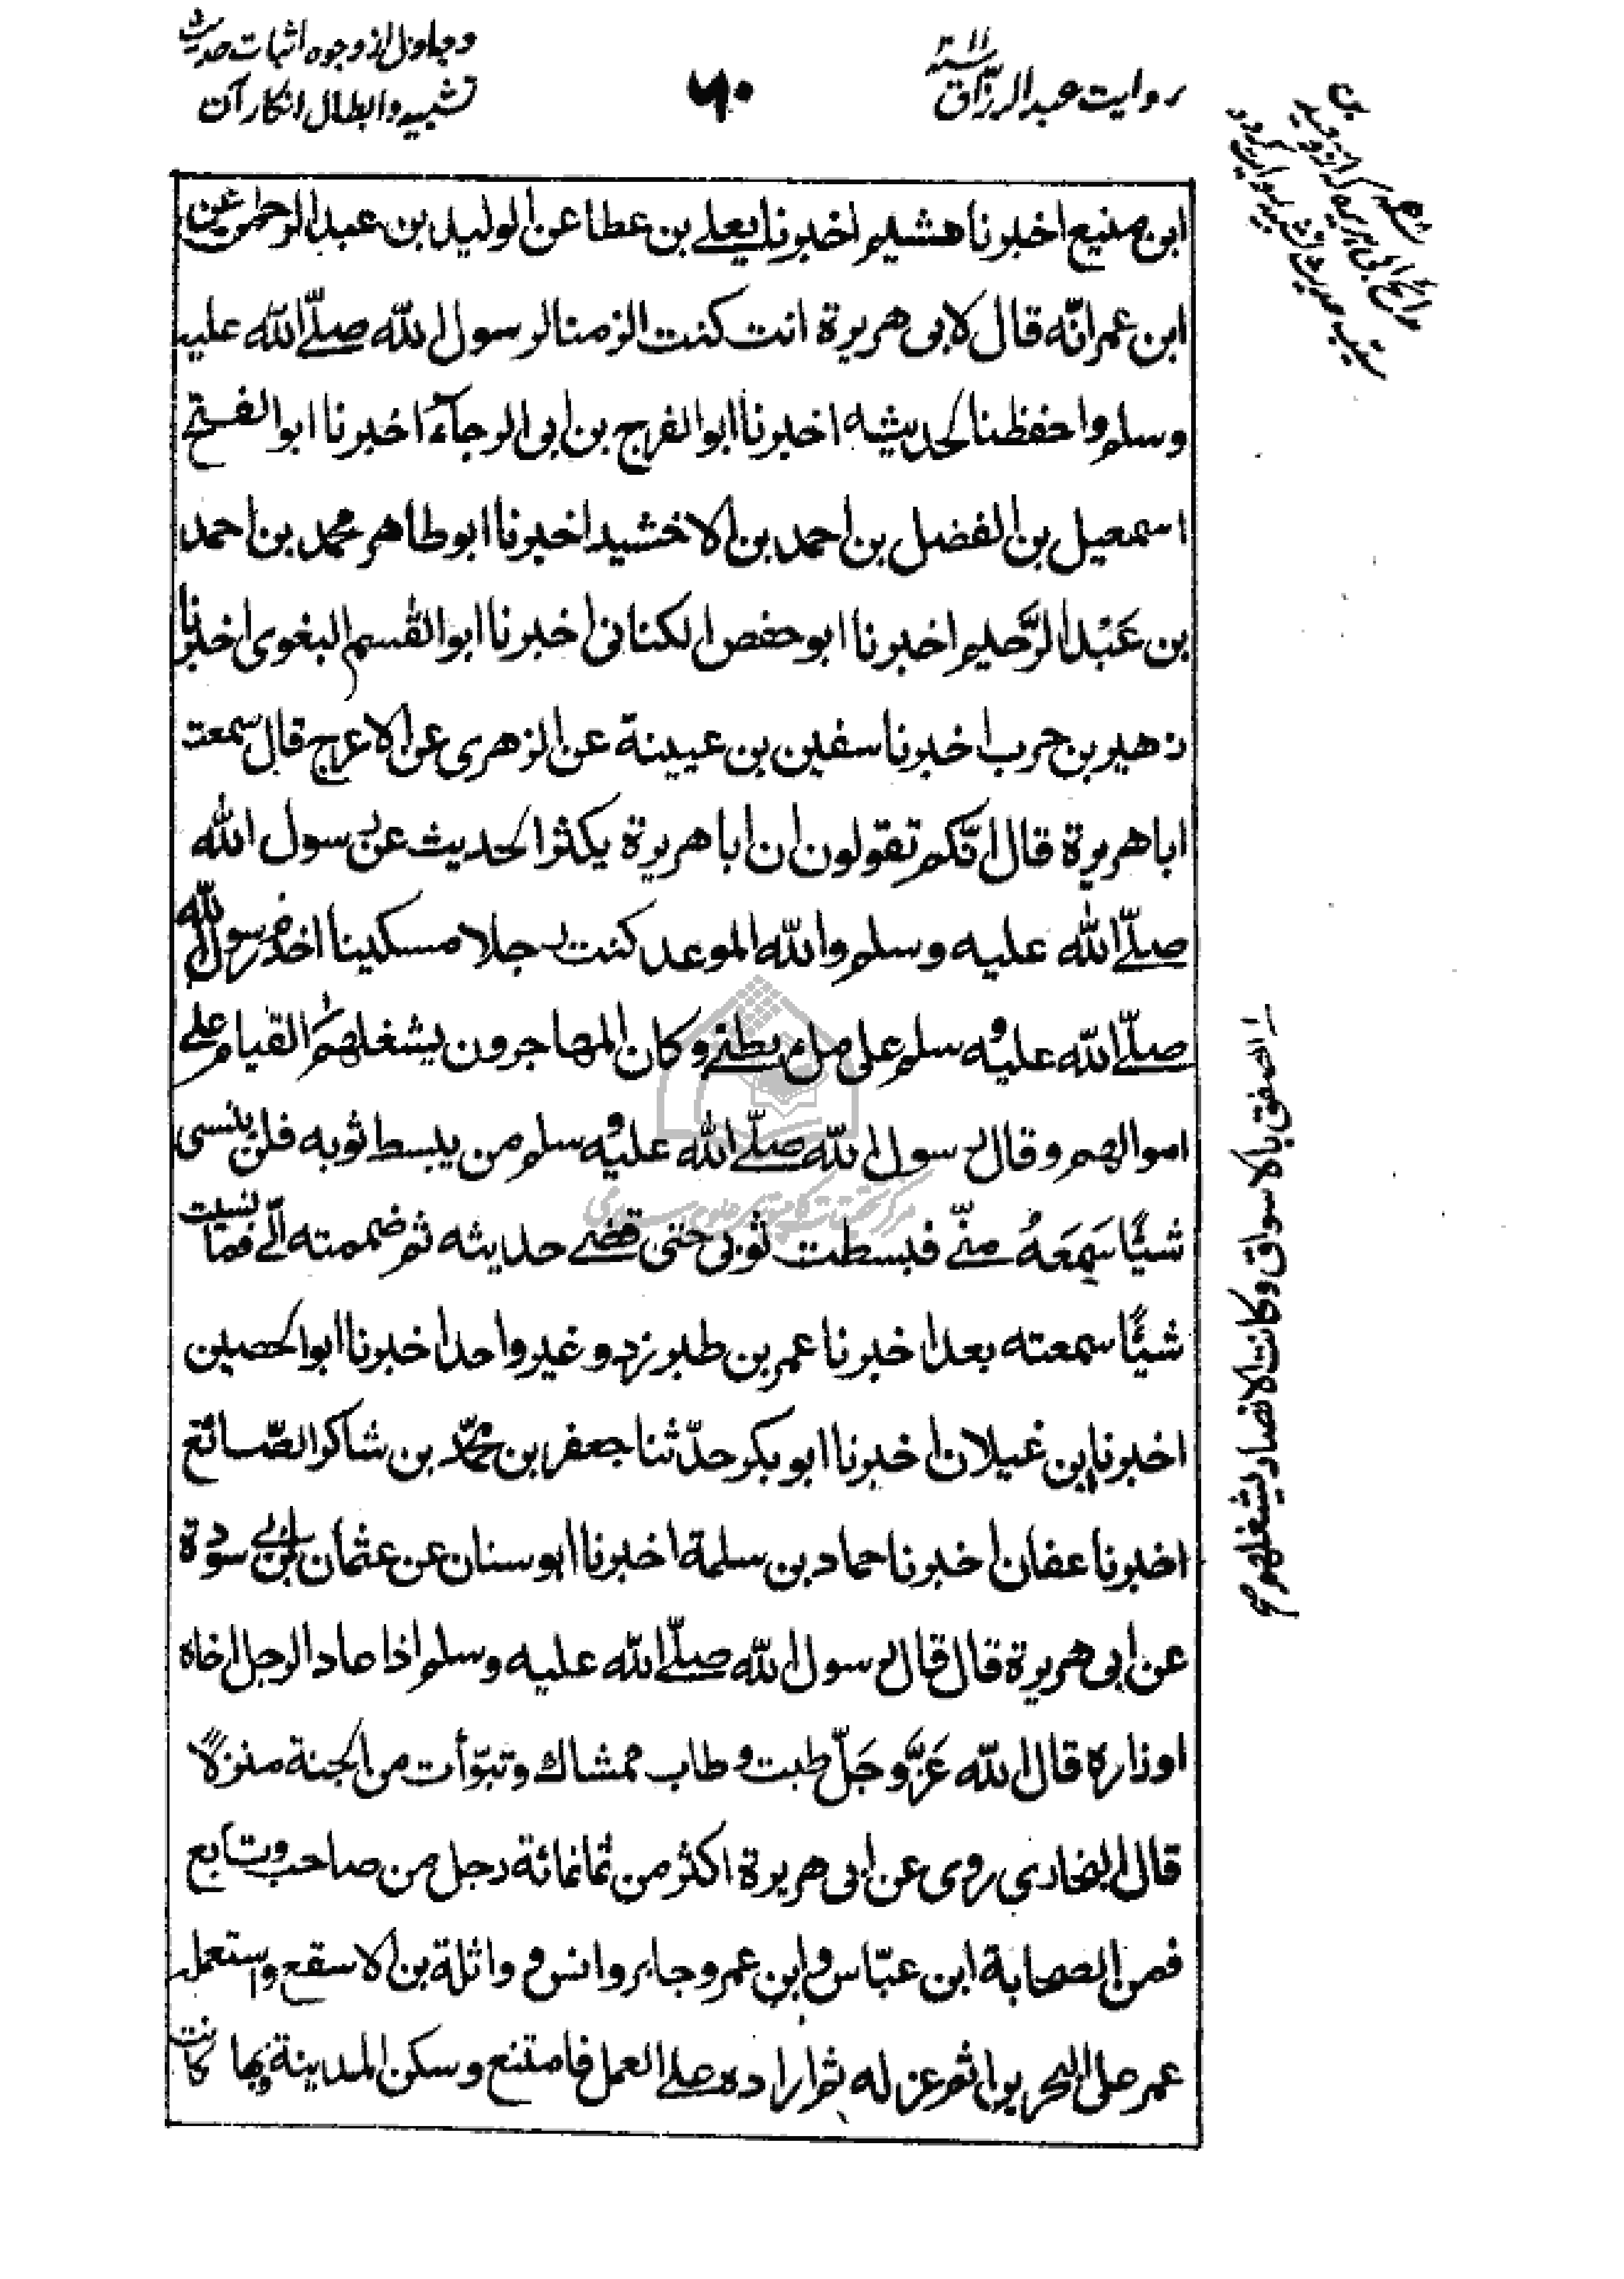 روايت عبدالرزّاق
۶۰
وجاول از وجوه اثبات حديث
تشبيه وابطال انكار آن
ابن منيع اخبرنا هشيم اخبرنا يعلى بن عطا عن الوليد بن عبدالرحمن عن
ابن عمر انّه قال لابى هريرة انت كنت الزمنا لرسول الله صلّى الله عليه
وسلم واحفظنا لحديثه اخبرنا ابوالفرج بن ابى الرجآء اخبرنا ابوالفتح
اسمعيل بن الفضل بن احمد بن الاخشيد اخبرنا ابوطاهر محمد بن احمد
بن عَبْد الرَّحيم اخبرنا ابو حفص الكنانى اخبرنا ابو القسم البغوى اخبرنا
زهير بن حرب اخبرنا سفين بن عيينة عن الزهرى عن الاعرج قال سمعت
اباهريرة قال انّكم تقولون ان اباهريرة يكثر الحديث عن رسول الله
صلّى الله عليه وسلم والله الموعد كنت رجلا مسكينا اخدم رسول الله
صلّى الله عليه وسلم على ملء بطنى وكان المهاجرون يشغلهم القيام على
اموالهم وقال رسول الله صلّى الله عليه وسلم من يبسط ثوبه فلن ينسى
شيئًا سَمِعَهُ منّى فبسطت ثوبى حتى قضى حديثه ثم ضممته الَّى فما نسيت
شيئًا سمعته بعد اخبرنا عمر بن طبرزد وغير واحد اخبرنا ابوالحصين
اخبرنا ابن غيلان اخبرنا ابوبكر حدّثنا جعفر بن محمّد بن شاكر الصّائغ
اخبرنا عفان اخبرنا حماد بن سلمة اخبرنا ابوسنان عن عثمان بن ابى سودة
عن ابى هريرة قال قال رسول الله صلّى الله عليه وسلم اذا عاد الرجل اخاه
اوزاره قال الله عَزَّوجَلّ طبت وطاب ممشاك وتبوّأت من الجنة منزلاً
قال البخارى روى عن ابى هريرة اكثر من ثمانمائة رجل من صاحب وتابع
فمن الصحابة ابن عبّاس وابن عمر وجابر وانس و واثلة بن الاسقع واستعمله
عمر على البحرين ثم عزله ثم اراده على العمل فامتنع وسكن المدينة وبها كانت
الصفق بالاسواق وكانت الانصار يشغلهم صح